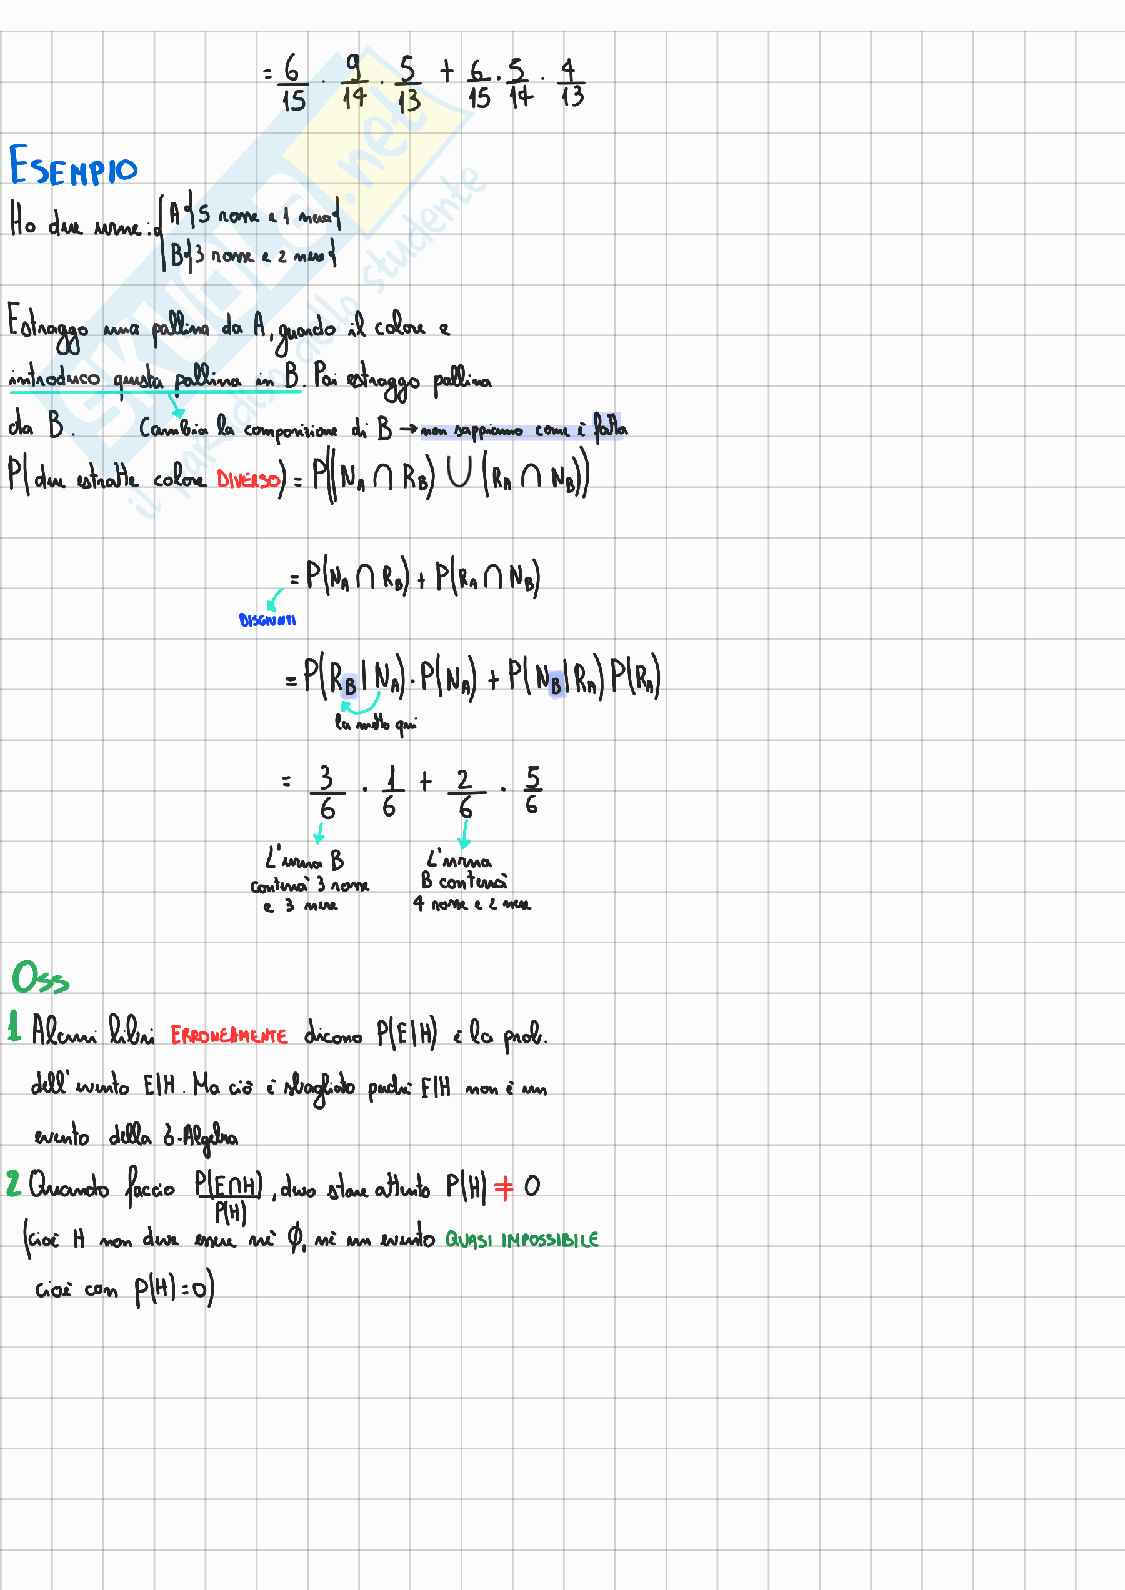 = 6/15 · 9/14 · 5/13 + 6/15 · 5/14 · 4/13
ESEMPIO
Ho due urne: { A{5 rosse e 1 nera}
B{3 rosse e 2 nere}
Estraggo una pallina da A, guardo il colore e
introduco questa pallina in B. Poi estraggo pallina
da B. Cambia la composizione di B → non sappiamo come è fatta
P(due estratte colore DIVERSO) = P((N_A ∩ R_B) ∪ (R_A ∩ N_B))
= P(N_A ∩ R_B) + P(R_A ∩ N_B)
DISGIUNTI
= P(R_B | N_A) · P(N_A) + P(N_B | R_A) P(R_A)
la metto qui
= 3/6 · 1/6 + 2/6 · 5/6
L'urna B
conterrà 3 rosse
e 3 nere
L'urna
B conterrà
4 rosse e 2 nere
Oss
1 Alcuni libri ERRONEAMENTE dicono P(E|H) è la prob.
dell'evento E|H. Ma ciò è sbagliato perché E|H non è un
evento della σ-Algebra
2 Quando faccio P(E∩H)/P(H), devo stare attento P(H) ≠ 0
(cioè H non deve essere né ∅, né un evento QUASI IMPOSSIBILE
cioè con P(H)=0)
SKUOLA.net
il paradiso dello studente